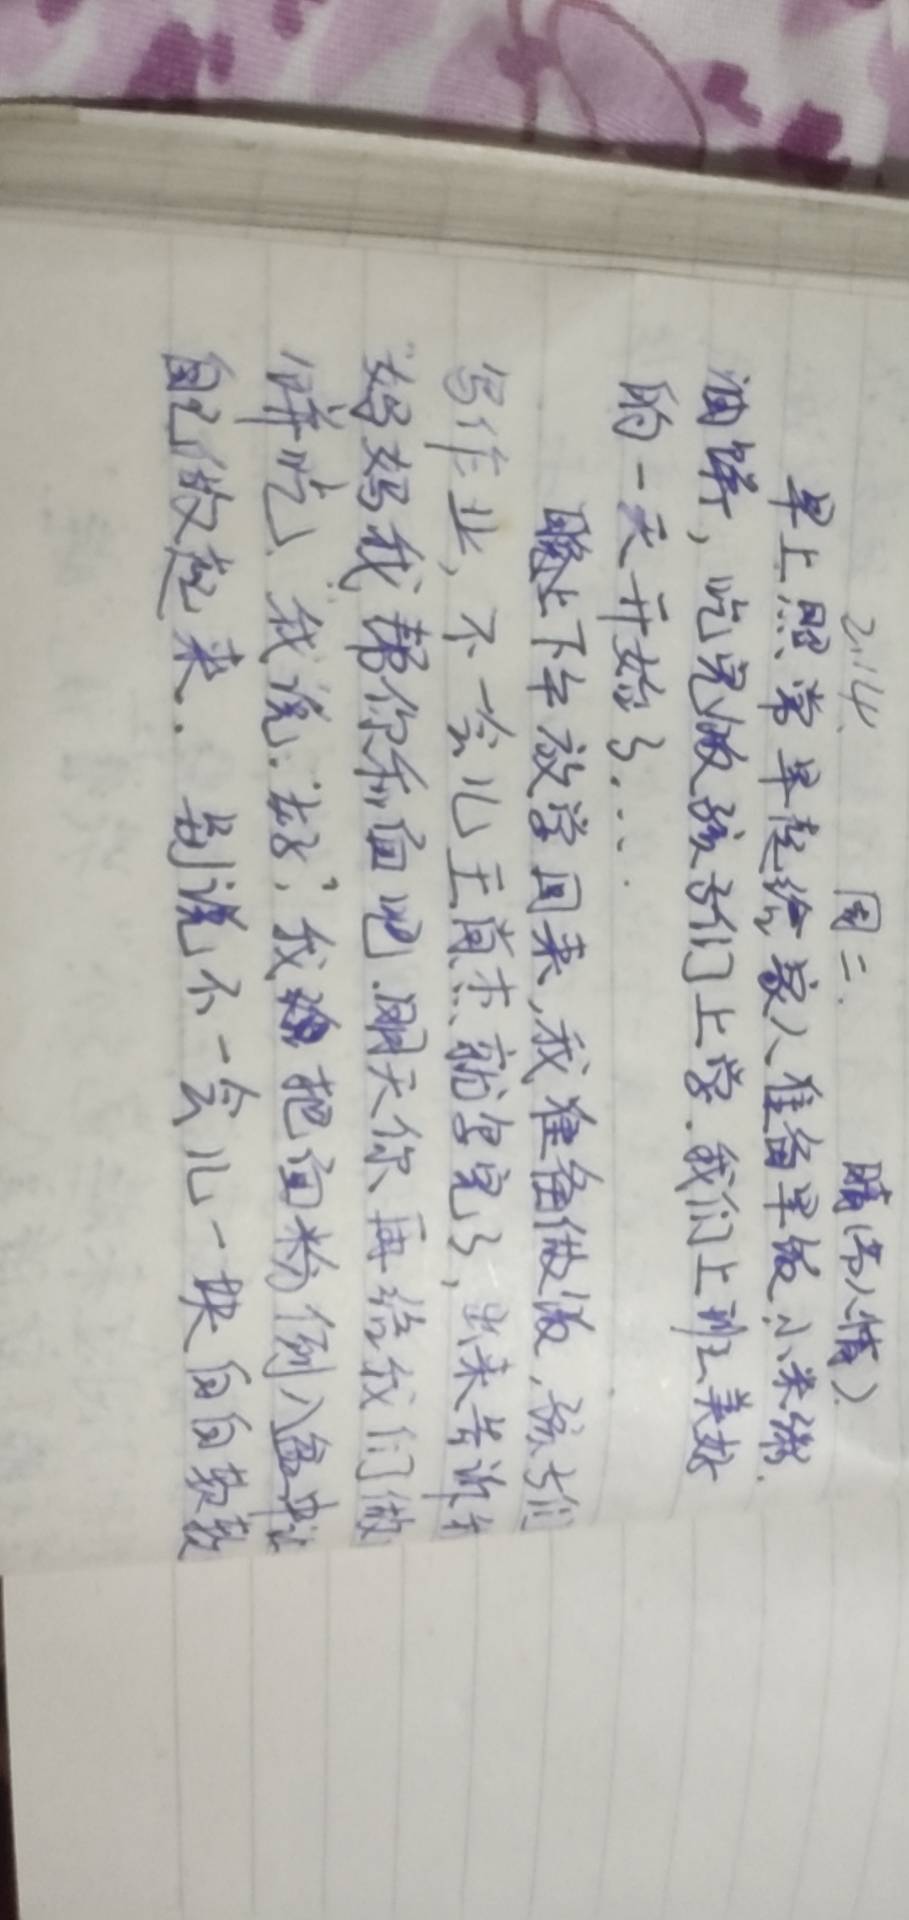 2.14. 周二. 晴(情人情).
早上照常早起给家人准备早饭,小米粥.
油饼,吃完饭孩子们上学.我们上班美好
的一天开始了...
晚上下午放学回来,我准备做饭,孩子们
写作业,不一会儿王 就写完了,出来告诉我
妈妈我帮你和面吧.明天你再给我们做
饼吃、我说:"好",我 把面粉倒入盆中让
自己做起来.别说不一会儿一块白白